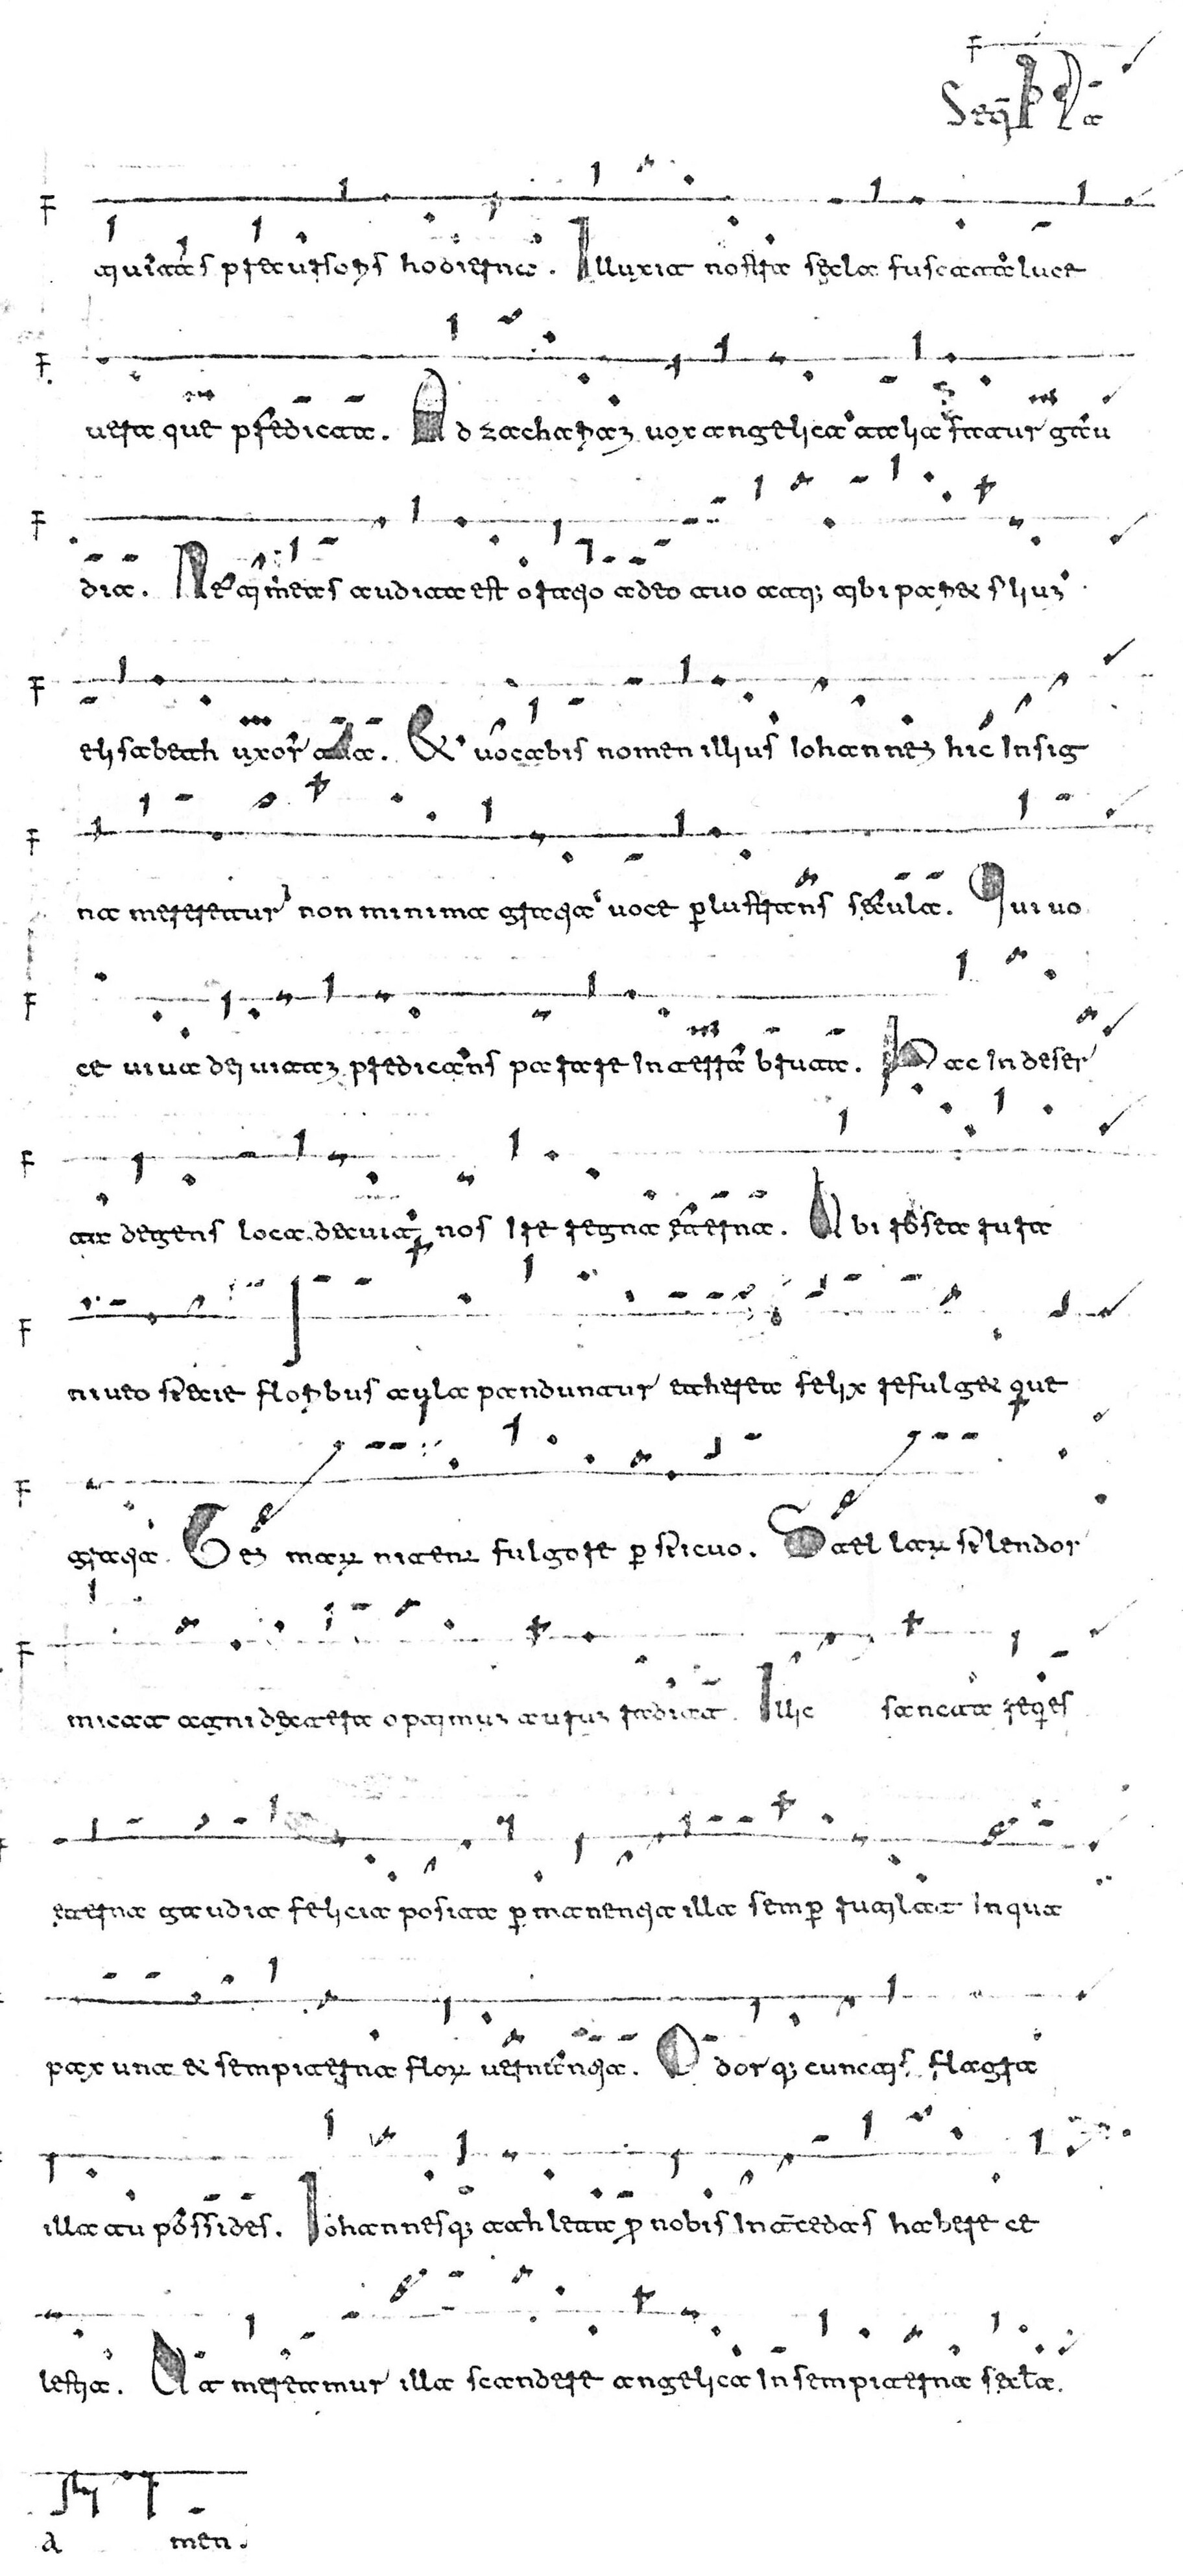 Seq̄ Pa
tiuitas precursoris hodierna. Illuxit nostra secla fuscata luce
uera que predicat. Ad zachariaz uox angelica talia fatur gau
dia. Ne timeas audita est oratio adeo tuo atq; tibi pariet filiuz
elisabeth uxor tua. Et uocabis nomen illius Iohannez hic Insig
na mereretur non minima gratia uoce plustrans secula. Qui uo
ce uiua dei uitaz predicans parare In terra bruta. Hac In deser
ta degens loca deuita nos Ire regna eterna. Ubi rosea rura
niueo specie floribus aula panduntur etherea felix refulget que
gratia. Gez maꝝ nitenꝝ fulgore pspicuo. Stel laꝝ splendor
micat agni dextera optimuz auruz radiat. Illic sancta reqies
eterna gaudia felicia posita pmanentia illa semp rutilat In qua
pax una et sempiterna floꝝ uernantia. Odor q; cunctis flagra
illa tu possides. Iohannesq; athleta pro nobis Intcedas habere ce
lestia. Ut mereamur illa scandere angelica In sempiterna secla.
A men.